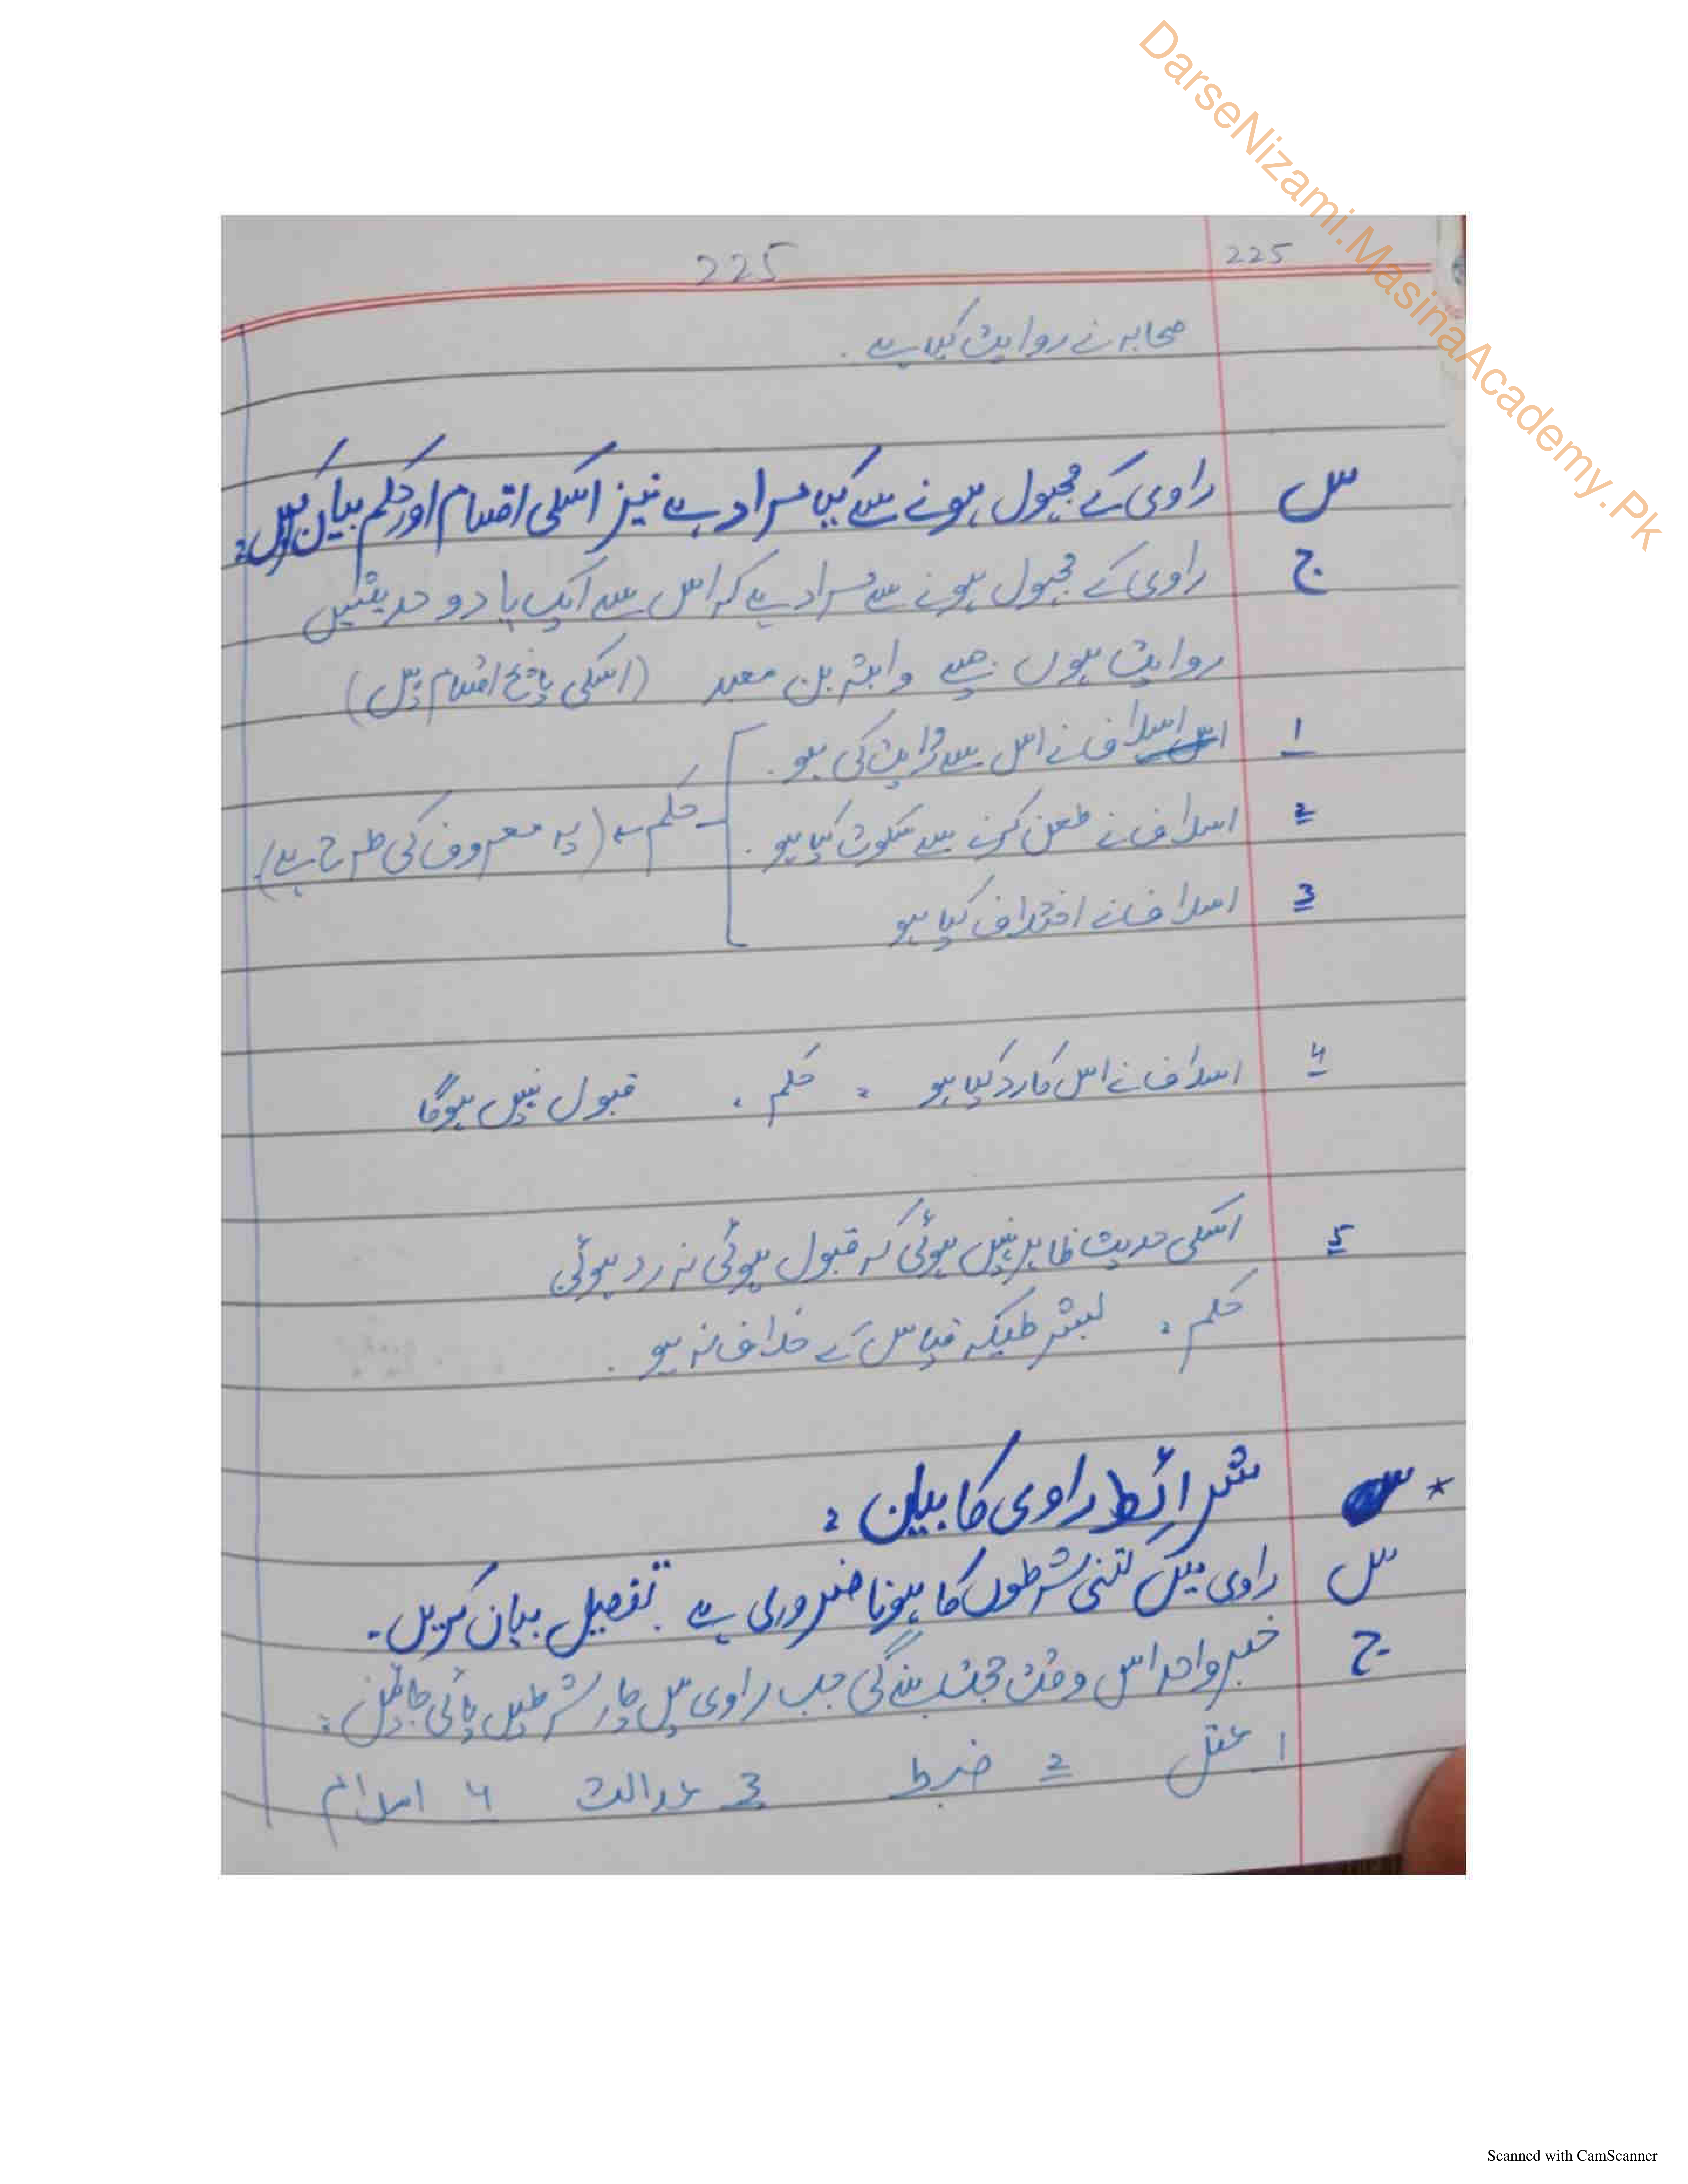 DarseNizami.MasinaAcademy.Pk
225 225
صحابہ نے روایت کیا ہے .
س راوی کے مجہول ہونے سے کیا مراد ہے نیز اسکی اقسام اور حکم بیان کریں:
ج راوی کے مجہول ہونے سے مراد ہے کہ اس سے ایک یا دو حدیثیں
روایت ہوں جیسے وابثہ بن معبد (اسکی پانچ اقسام ہیں)
1 اسلاف نے اس سے روایت کی ہو .
2 اسلاف نے طعن کرنے سے سکوت کیا ہو . حکم ← (یہ معروف کی طرح ہے)
3 اسلاف نے اختلاف کیا ہو
4 اسلاف نے اس کا رد کیا ہو : حکم : قبول نہیں ہوگا
5 اسکی حدیث ظاہر نہیں ہوئی کہ قبول ہوئی نہ رد ہوئی
حکم : بشرطیکہ قیاس کے خلاف نہ ہو .
* شرائط راوی کا بیان :
س راوی میں کتنی شرطوں کا ہونا ضروری ہے تفصیل بیان کریں۔
ج خبر واحد اس وقت حجت بنے گی جب راوی میں چار شرطیں پائی جائیں :
1 عقل 2 ضبط 3 عدالت 4 اسلام
Scanned with CamScanner